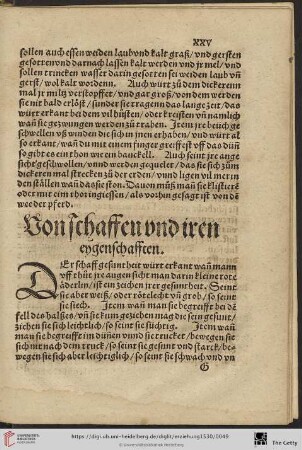 XXV
sollen auch essen weiden laub vnd kalt graß / vnd gersten
gesotten vnd darnach lassen kalt werden vnd jr mel / vnd
sollen trincken wasser darin gesorten sei weiden laub vñ
gerst / wol kalt worden. Auch würt zů dem dickeren
mal jr miltz verstopffet / vnd gar groß / von dem werden
sie nit bald erlößt / sunder sie tragenn das lange zeit / das
würt erkant bei dem vil hůsten / oder kreisten vñ namlich
wañ sie gezwungen werden zů traben. Item jre beüch ge
schwellen võ winden die sich in jnen erhaben / vnd würt al
so erkant / wañ du mit einem finger greiffest vff das düñ
so gibt es ein thon wie ein bauckell. Auch seint jre ange
sicht geschwollen / vnnd werden gequelet / das sie sich zům
dickeren mal strecken zů der erden / vnnd ligen vil mer in
den ställen wañ das sie ston. Davon můß man sie klistierē
oder mit ein thoringiessen / als vorhin gesagt ist von de
wee der pferd.
Von schaffen vnd iren
eygenschafften.
DEr schaff gesuntheit würt erkant wañ mann
vff thůt jre augen sicht man darin kleine rote
äderlin / ist ein zeichen jrer gesuntheit. Seint
sie aber weiß / oder rötelecht vñ grob / so seint
sie siech. Item wañ man sie begreifft bei dē
fell des halßes / vñ sie kum gezichen mag die sein gesunt /
ziehen sie sich leichtlich / so seint sie süchtig. Item wañ
man sie begreifft im dünnen vnnd sie trucket / bewegen sie
sich nit nach dem truck / so seint sie gesunt vnd starck / be-
wegen sie sich aber leichtiglich / so seint sie schwach vnd vn
G
https://digi.ub.uni-heidelberg.de/diglit/erziehung1530/0049
© Universitätsbibliothek Heidelberg
UNIVERSITÄTS-
BIBLIOTHEK
HEIDELBERG
The Getty